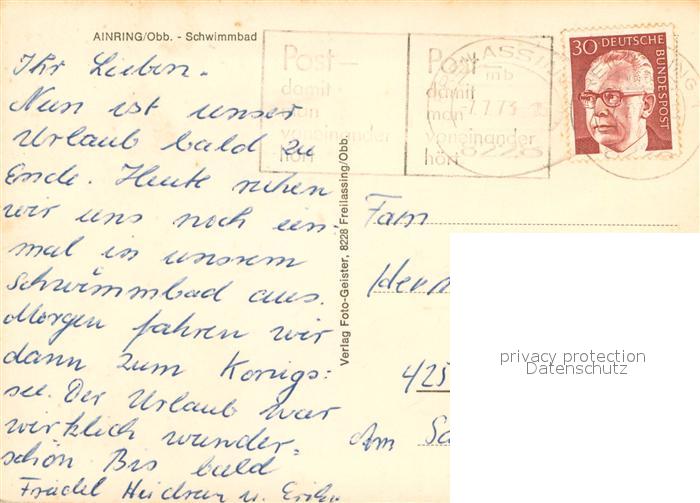 AINRING/Obb. - Schwimmbad
Ihr Lieben.
Nun ist unser
Urlaub bald zu
Ende. Heute ruhen
wir uns noch ein-
mal in unserem
Schwimmbad aus.
Morgen fahren wir
dann zum Königs:
see. Der Urlaub war
wirklich wunder-
schön Bis bald
Friedel Heidrun u.
Verlag Foto-Geister, 8228 Freilassing/Obb.
Post
damit
man
voneinander
hört
Post
damit
man
voneinander
hört
FREILASSING
mb
-7.7.73
8228
30 DEUTSCHE
BUNDESPOST
Fam
425
Am
privacy protection
Datenschutz